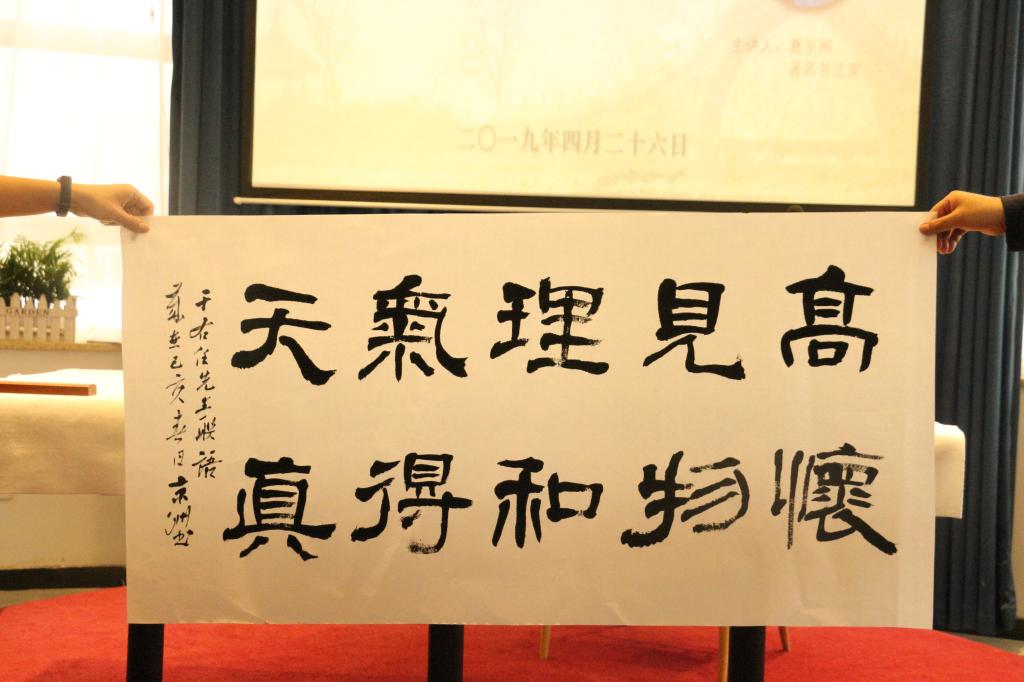 主讲人：夏京州
著名书法家
二〇一九年四月二十六日
高懷
見物
理和
氣得
天真
于右任先生聯語
歲在己亥春日京州书
GARDEN